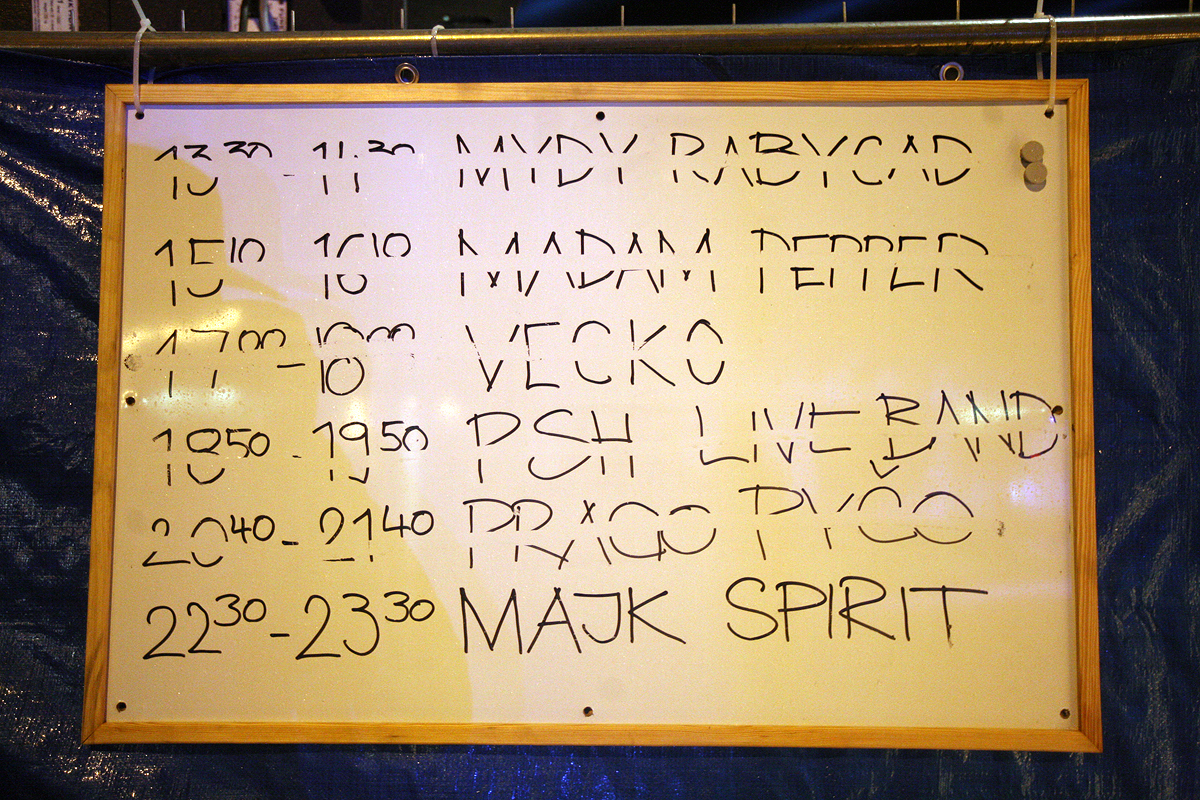 13 30 - 14.30 MYDY RABYCAD
15 10 16 10 MADAM PEPPER
17 00 - 18 00 VECKO
18 50 - 19 50 PSH LIVE BAND
20 40 - 21 40 PRAGO PYČO
22 30 - 23 30 MAJK SPIRIT